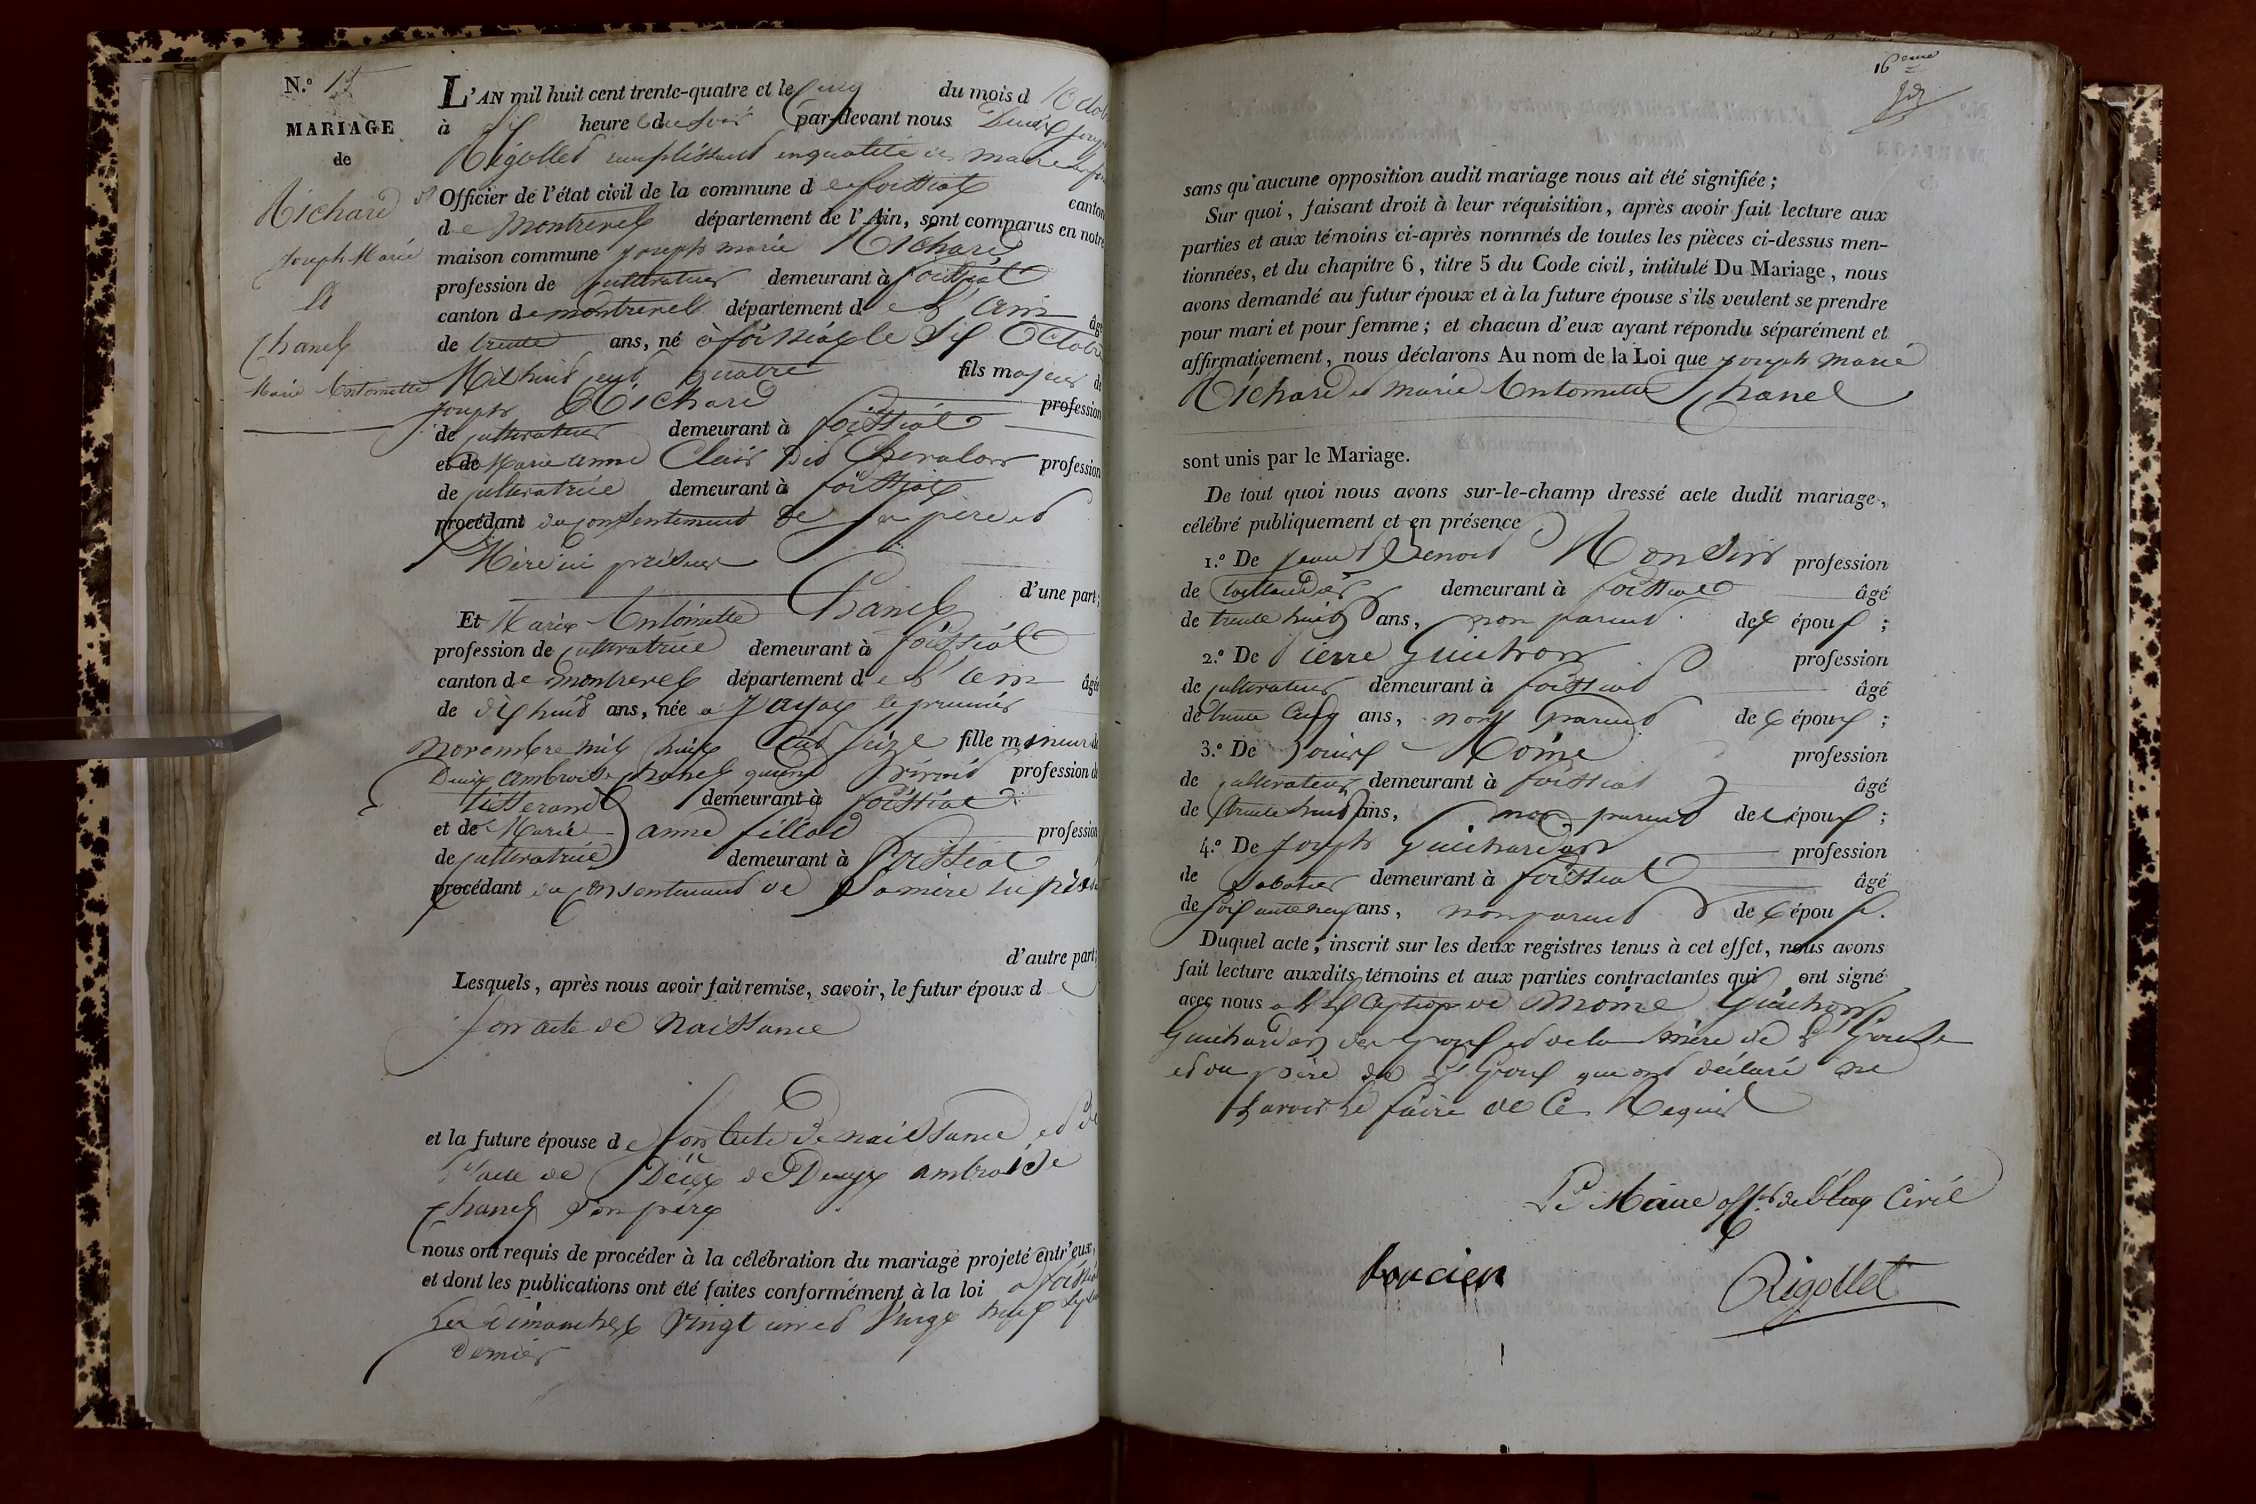 N.º 15
MARIAGE
de
Richard
Joseph Marie
et
Chanel
Marie Antoinette
L'AN mil huit cent trente-quatre et le cinq du mois d'8octobre
à six heures du soir par-devant nous Denis Joseph
Rigollet remplissant en qualité de maire
Officier de l'état civil de la commune de foissiat canton
de Montrevel département de l'Ain, sont comparus en notre
maison commune Joseph marie Richard
profession de Cultivateur demeurant à foissiat
canton de montrevel département de l'ain âgé
de trente ans, né à foissiat le dix Octobre
Mil huit cent quatre fils majeur de
Joseph Richard profession
de cultivateur demeurant à foissiat
et de Marie anne Clair profession
de cultivatrice demeurant à foissiat
procédant du consentement de ses père et
Mère ici présens
d'une part;
Et Marie Antoinette Chanel
profession de cultivatrice demeurant à foissiat
canton de montrevel département de l'ain âgée
de dix huit ans, née a jayat le premier
novembre mil huit cent seize fille mineure de
Denis ambroise Chanel quand vivait profession de
tisserand demeurant à foissiat
et de Marie anne fillod profession
de cultivatrice demeurant à foissiat
procédant du consentement de sa mère ici
d'autre part;
Lesquels, après nous avoir fait remise, savoir, le futur époux de
son acte de naissance
et la future épouse de son acte de naissance et de
l'acte de Décès de Denis ambroise
Chanel son père
nous ont requis de procéder à la célébration du mariage projeté entr'eux,
et dont les publications ont été faites conformément à la loi a foissiat
les dimanches vingt un et vingt huit
dernier
16eme
sans qu'aucune opposition audit mariage nous ait été signifiée;
Sur quoi, faisant droit à leur réquisition, après avoir fait lecture aux
parties et aux témoins ci-après nommés de toutes les pièces ci-dessus men-
tionnées, et du chapitre 6, titre 5 du Code civil, intitulé Du Mariage, nous
avons demandé au futur époux et à la future épouse s'ils veulent se prendre
pour mari et pour femme; et chacun d'eux ayant répondu séparément et
affirmativement, nous déclarons Au nom de la Loi que Joseph Marie
Richard et Marie Antoinette Chanel
sont unis par le Mariage.
De tout quoi nous avons sur-le-champ dressé acte dudit mariage,
célébré publiquement et en présence
1.º De Jean Benoit profession
de taillandier demeurant à foissiat âgé
de trente huit ans, non parent des époux;
2.º De Pierre Guichon profession
de cultivateur demeurant à foissiat âgé
de trente cinq ans, non parent des époux;
3.º De Louis Moine profession
de cultivateur demeurant à foissiat âgé
de trente huit ans, non parent des époux;
4.º De Joseph Guichardan profession
de Sabotier demeurant à foissiat âgé
de soixante neuf ans, non parent des époux.
Duquel acte, inscrit sur les deux registres tenus à cet effet, nous avons
fait lecture auxdits témoins et aux parties contractantes qui ont signé
avec nous a l'exception de Moine Guichon
Guichardan des époux et de la mère de l'épouse
et du père de l'époux qui ont déclaré ne
savoir le faire de ce Requis
Le Maire off.er de l'état Civil
Rigollet